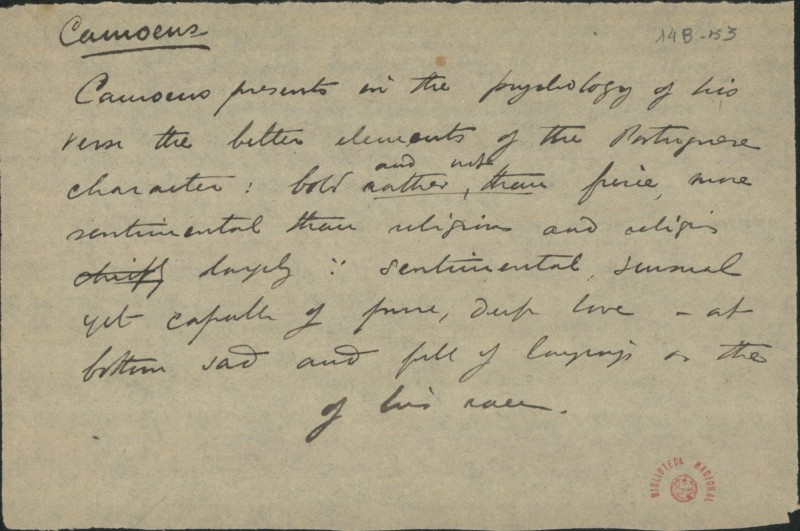 Camoens
14B-153
Camoens presents in the psychology of his
verse the better elements of the Portuguese
and not
character: bold rather, than fierce, more
sentimental than religious and religious
chiefly largely ∵ sentimental, sensual
yet capable of pure, deep love – at
bottom sad and full of longings as the
of his race.
BIBLIOTECA NACIONAL